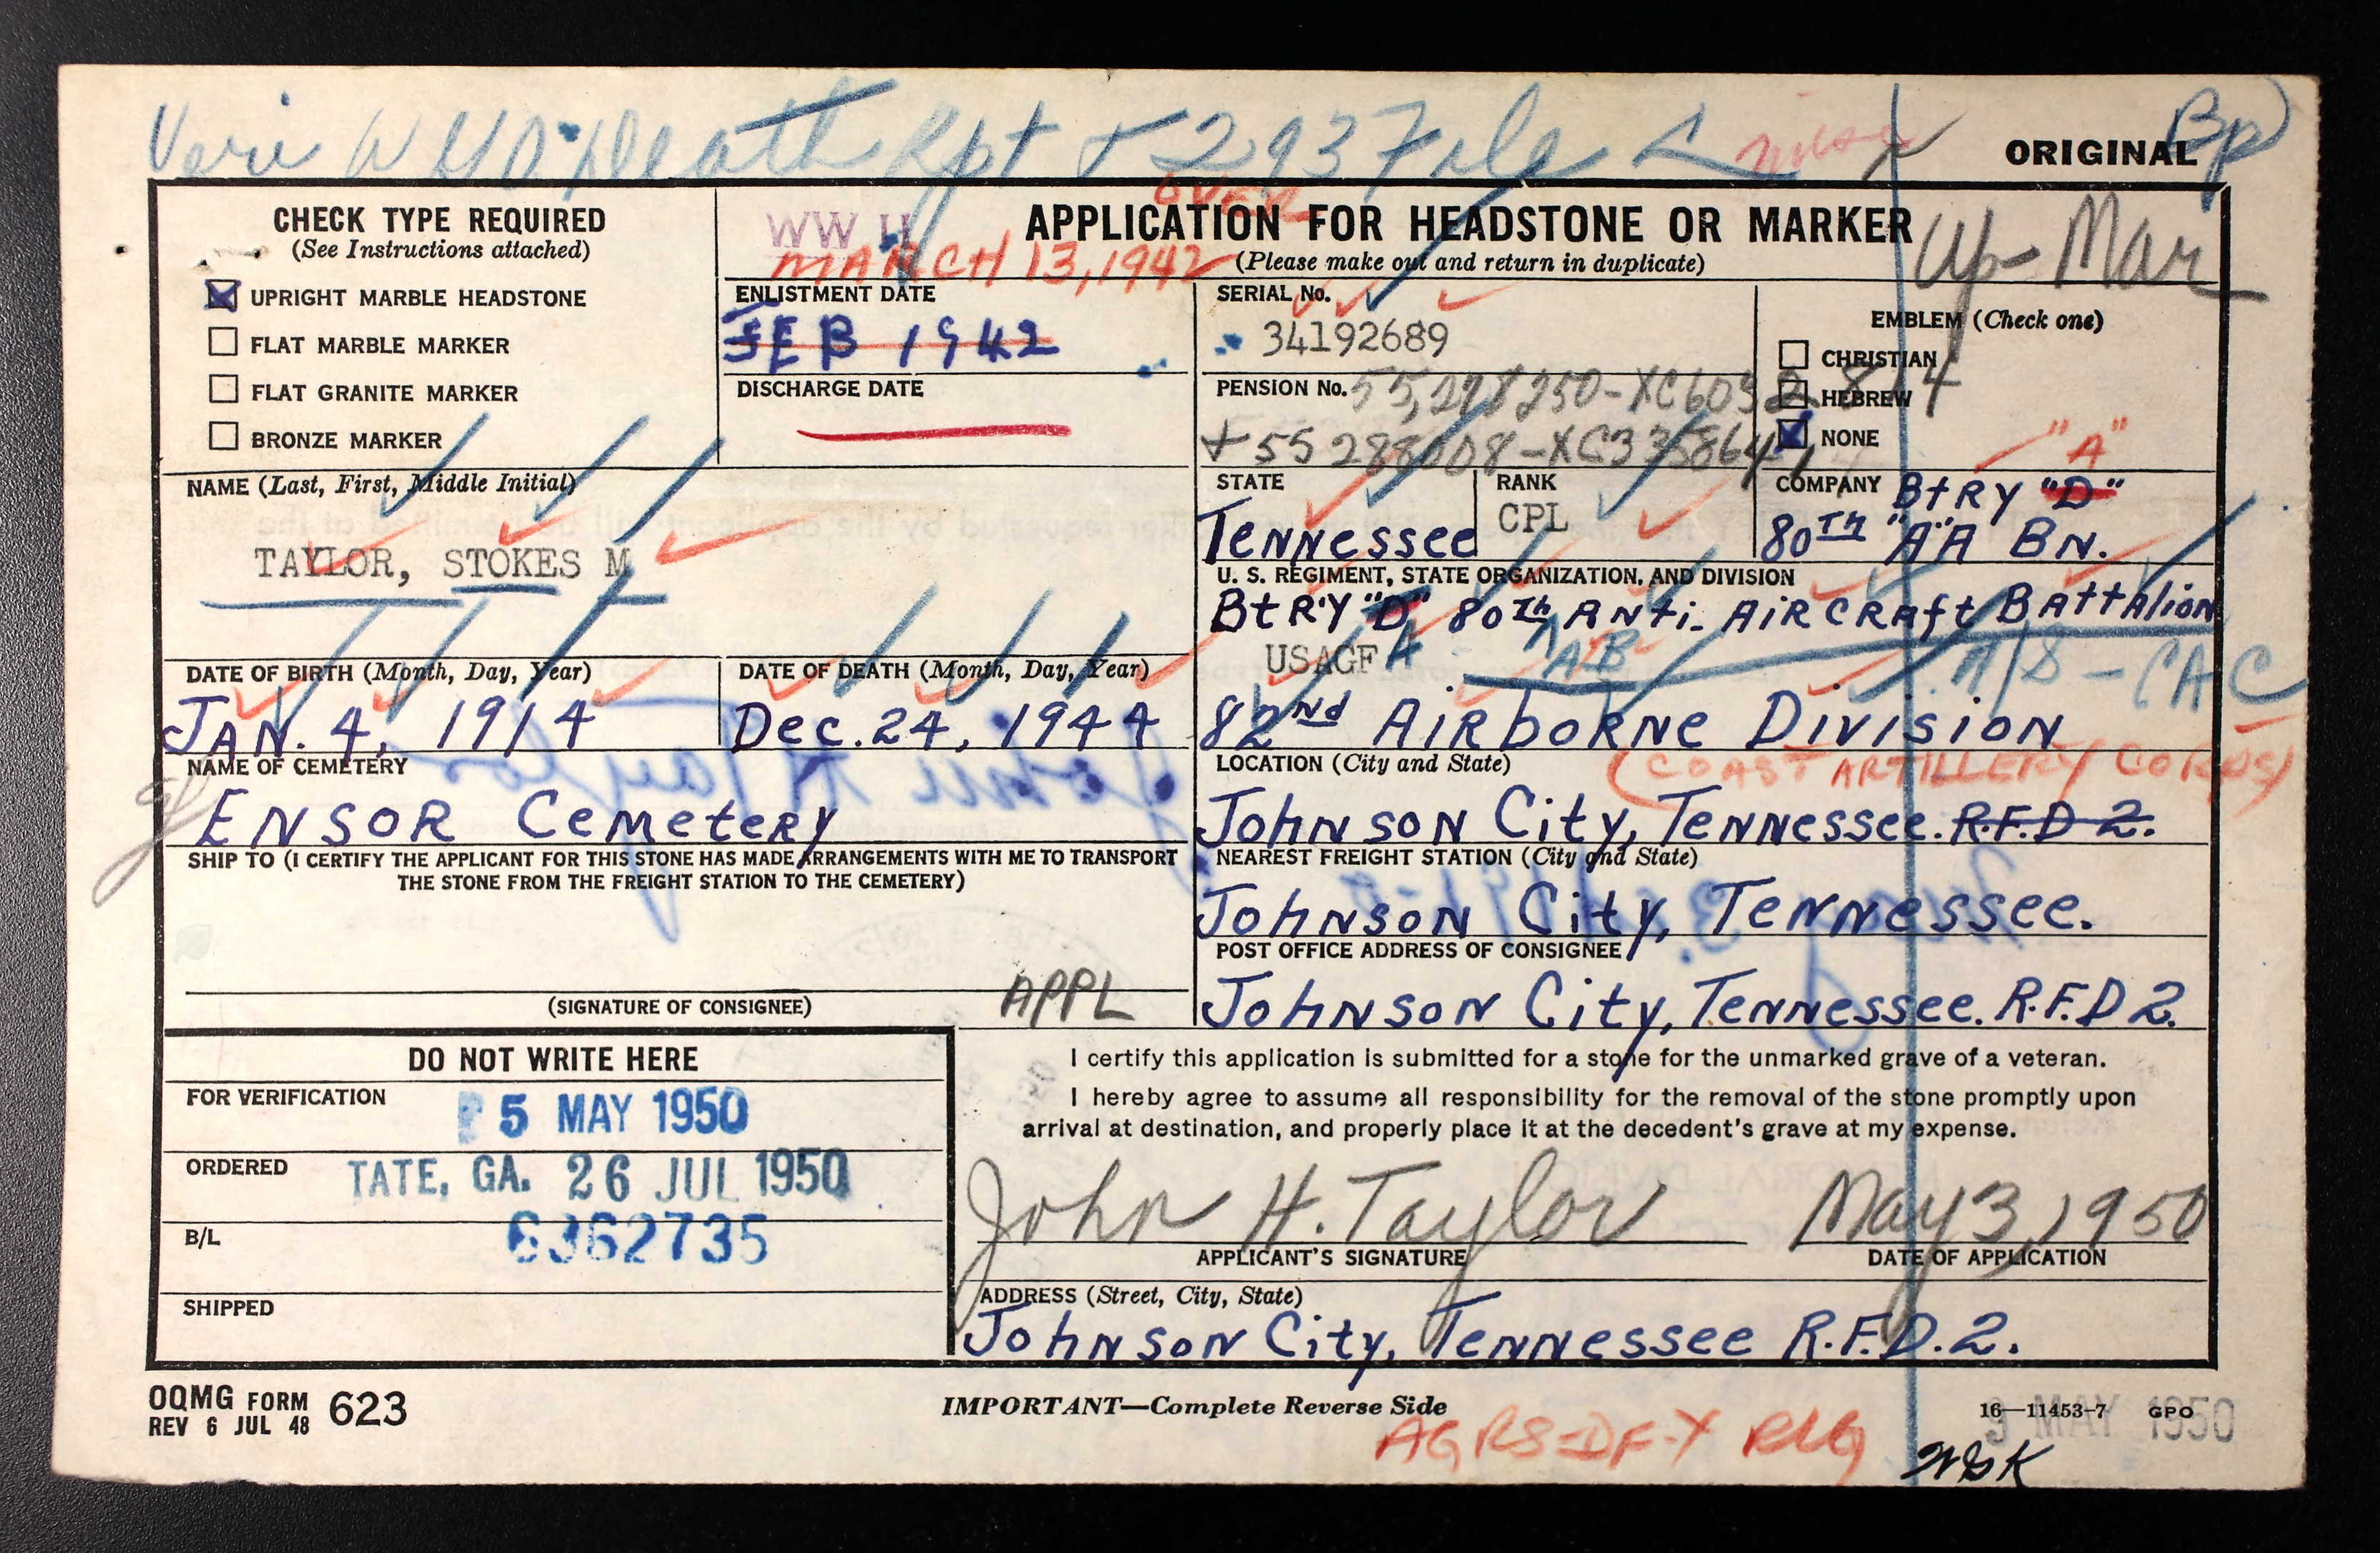 Rpt + 293 File
ORIGINAL
Bp
CHECK TYPE REQUIRED
(See Instructions attached)
UPRIGHT MARBLE HEADSTONE
FLAT MARBLE MARKER
FLAT GRANITE MARKER
BRONZE MARKER
WW II
OVER
APPLICATION FOR HEADSTONE OR MARKER
(Please make out and return in duplicate)
Up Mar
MARCH 13, 1942
ENLISTMENT DATE
FEB 1942
DISCHARGE DATE
SERIAL No.
34192689
PENSION No. 55,298250-XC6032814
+ 55 288008-XC3358644
EMBLEM (Check one)
CHRISTIAN
HEBREW
NONE
NAME (Last, First, Middle Initial)
TAYLOR, STOKES M
STATE
Tennessee
RANK
CPL
"A"
COMPANY BtRY "D"
80th "A"A BN.
U. S. REGIMENT, STATE ORGANIZATION, AND DIVISION
BtRY "D" 80th ANti-AiRCRAft BAttAlion
USAGF A AB
T/S - CAC
82nd AiRboRNe DiVisioN
(COAST ARTILLERY CORPS)
DATE OF BIRTH (Month, Day, Year)
JAN. 4, 1914
DATE OF DEATH (Month, Day, Year)
Dec. 24, 1944
NAME OF CEMETERY
ENSOR CemeteRy
LOCATION (City and State)
JohNsoN City, TeNNessee. R.F.D 2.
SHIP TO (I CERTIFY THE APPLICANT FOR THIS STONE HAS MADE ARRANGEMENTS WITH ME TO TRANSPORT
THE STONE FROM THE FREIGHT STATION TO THE CEMETERY)
NEAREST FREIGHT STATION (City and State)
JohNsoN City, TeNNessee.
POST OFFICE ADDRESS OF CONSIGNEE
JohNsoN City, TeNNessee. R.F.D 2.
APPL
(SIGNATURE OF CONSIGNEE)
DO NOT WRITE HERE
FOR VERIFICATION
5 MAY 1950
ORDERED
TATE, GA. 26 JUL 1950
B/L
6362735
SHIPPED
I certify this application is submitted for a stone for the unmarked grave of a veteran.
I hereby agree to assume all responsibility for the removal of the stone promptly upon
arrival at destination, and properly place it at the decedent's grave at my expense.
John H. Taylor
May 3, 1950
APPLICANT'S SIGNATURE
DATE OF APPLICATION
ADDRESS (Street, City, State)
JohNsoN City, TeNNessee R.F.D. 2.
OQMG FORM 623
REV 6 JUL 48
IMPORTANT—Complete Reverse Side
16—11453-7 GPO
9 MAY 1950
AGRS-DF-Y
WGK